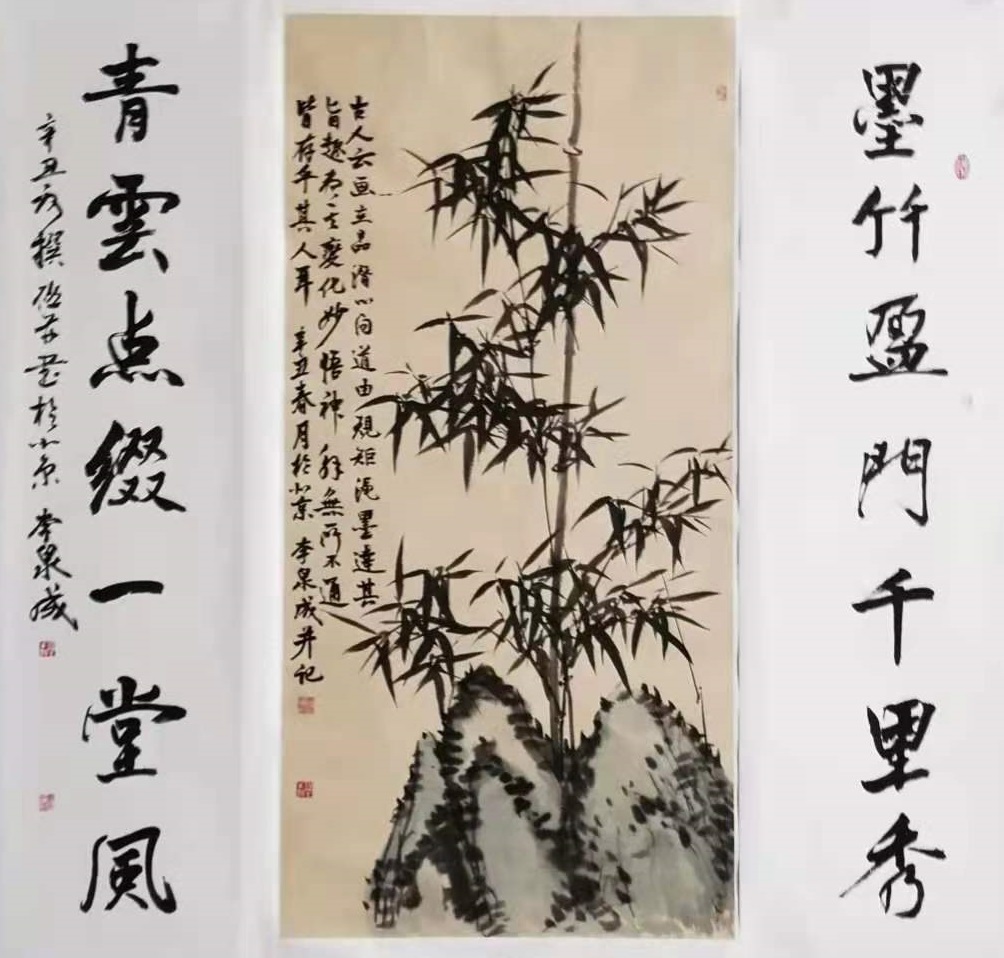 墨竹盈門千里秀
古人云画立品潛心向道由規矩绳墨達其
旨趣为之變化妙悟神解無所不通
皆存乎其人耳 辛丑春月於北京 李泉成并记
青雲点缀一堂風
辛丑 撰 於北京 李泉成